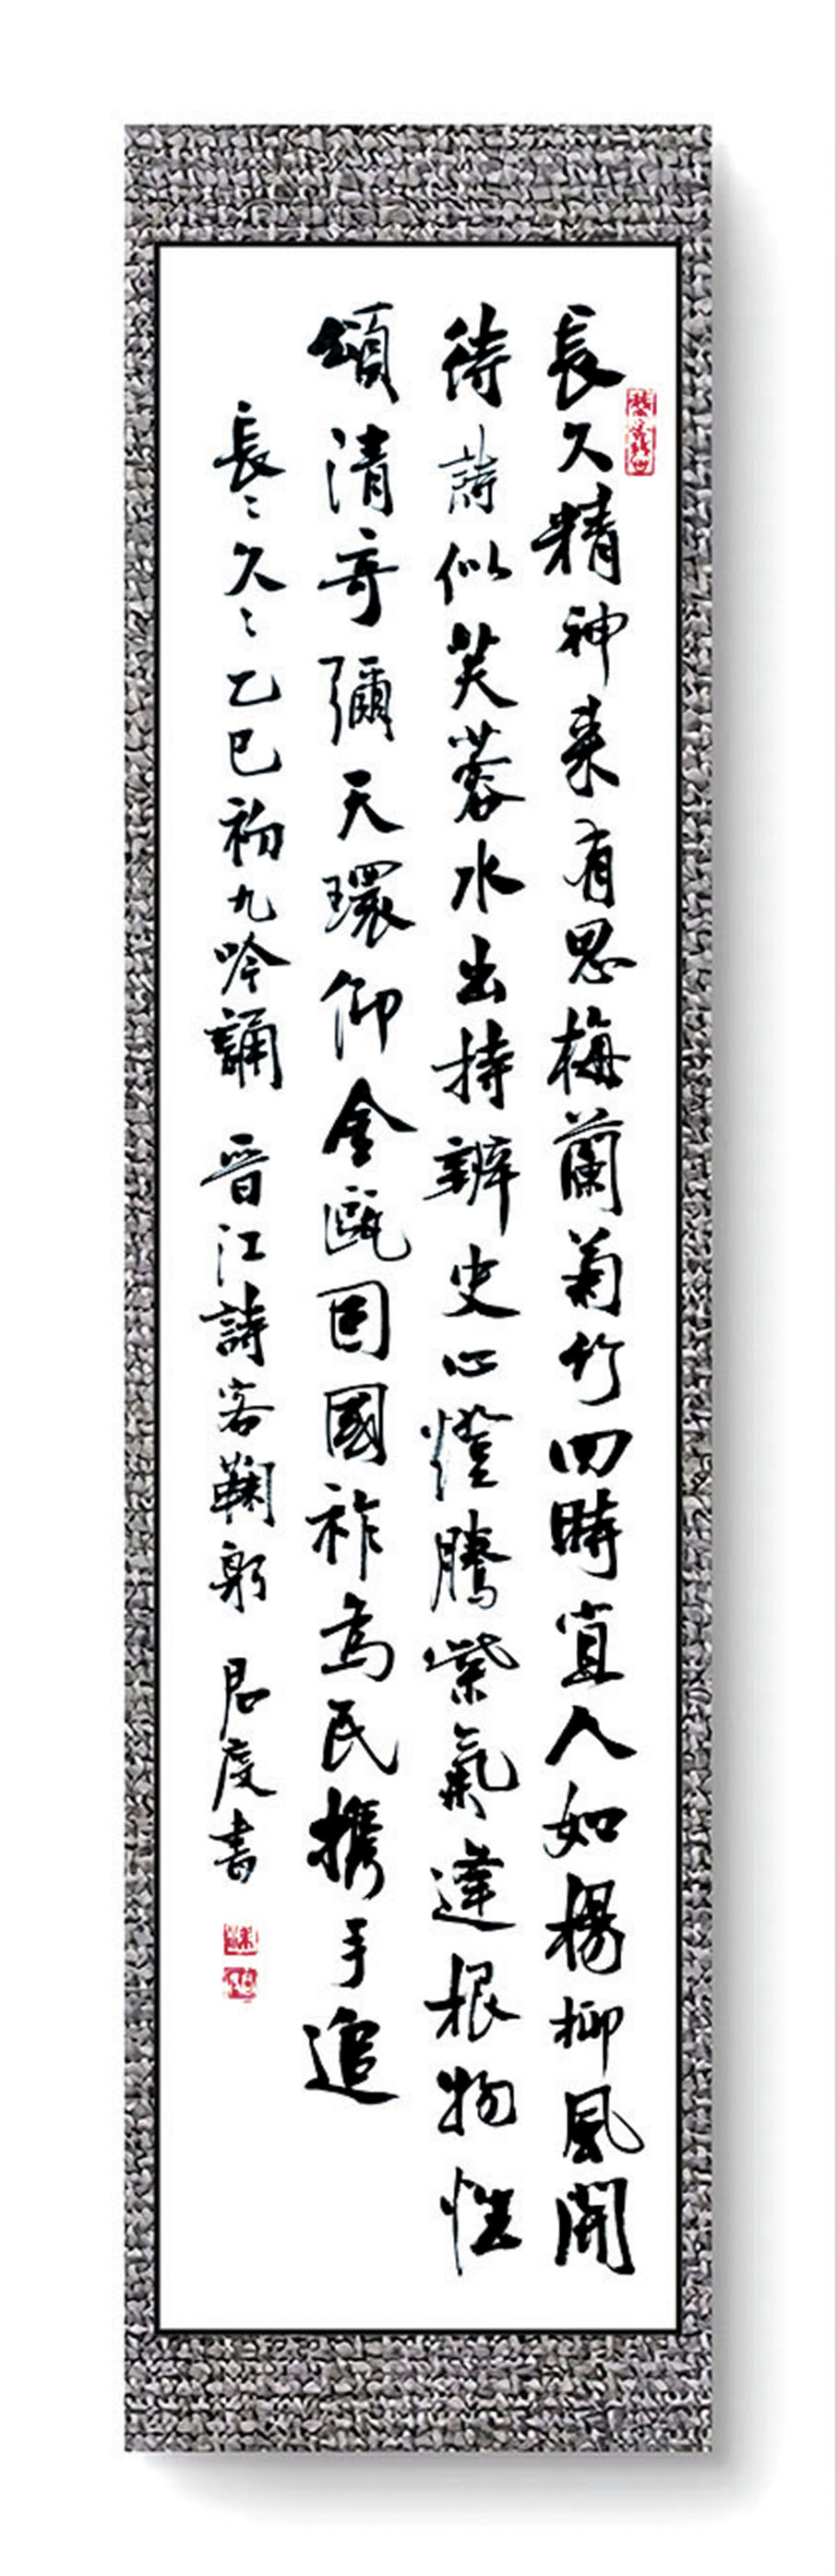 長久精神来有思梅蘭菊竹四時宜人如楊柳風開
待詩似芙蓉水出持辨史心燈騰紫氣達根物性
頌清奇彌天環仰金甌固國祚為民携手追
長〻久〻乙巳初九吟誦 晋江詩客鞠躬 君度書